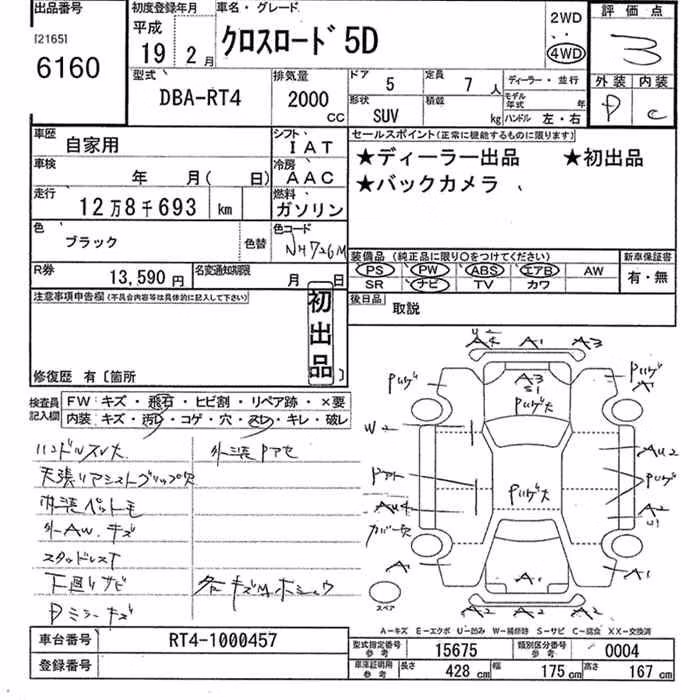 出品番号 初度登録年月 車名・グレード 2WD 評価点
[2165] 平成 クロスロード 5D ・・ 3
6160 19年 2月 4WD 外装 内装
型式 排気量 ドア 定員 ディーラー・並行 D C
DBA-RT4 2000 CC 5 7人 モデル年式 年
形状 SUV 積載 kg ハンドル 左・右
車歴 自家用 シフト IAT セールスポイント(正常に機能するものに限ります)
車検 年 月( 日) 冷房 AAC ★ディーラー出品 ★初出品
走行 12万8千693 km 燃料 ガソリン ★バックカメラ
色 ブラック 色替 色コード NH726M
装備品(純正品に限り○をつけてください) 新車保証書
R券 13,590円 名変通知期限 月 日 PS PW ABS エアB AW 有・無
SR ナビ TV カワ
注意事項申告欄(不具合内容等は具体的に記入して下さい) 初出品 後日品 取説
修復歴 有〔箇所
検査員記入欄 FW:キズ・飛石・ヒビ割・リペア跡・×要
内装:キズ・汚レ・コゲ・穴・スレ・キレ・破レ
ハンドルスレ大 外装Pアセ
天張リアシストグリップ穴
内装ペット毛
外AW.キズ
スタッドレスT
下廻リサビ 各キズM.ホシュウ
Dミラーキズ
A4 A1 A3
Pハゲ A3 S1 Pハゲ
Pハゲ大 A1
W2 AU2
Pハゲ大 Pハゲ
AU4 A2
カバー欠 U1
A1 A1 A1
スペア A2 A2 A2
A-キズ E-エクボ U-凹み W-補修跡 S-サビ C-腐食 XX-交換済
車台番号 RT4-1000457 型式指定番号 参考 15675 類別区分番号 参考 0004
登録番号 車車証明用 参考 長さ 428 cm 幅 175 cm 高さ 167 cm